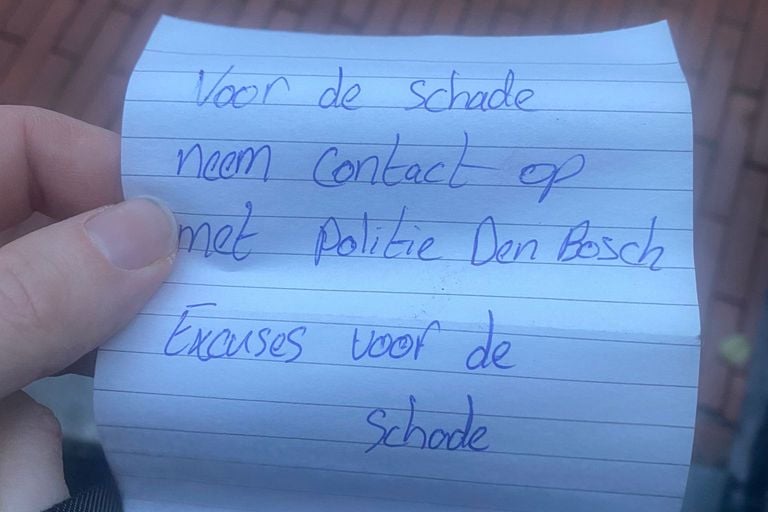 Voor de schade
neem contact op
met politie Den Bosch
Excuses voor de
schade